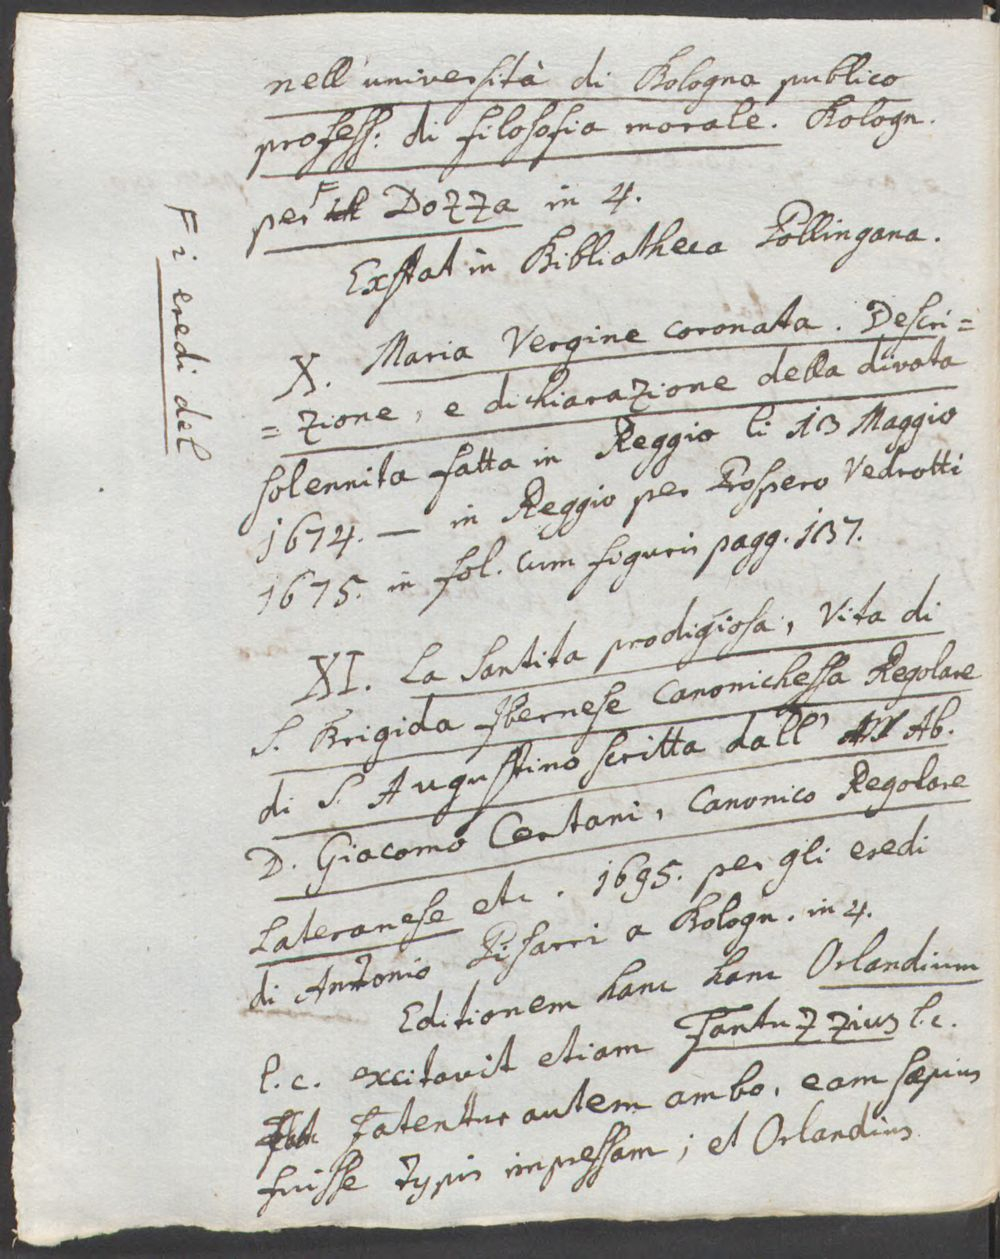 nell' università di Bologna publico
profess: di filosofia morale. Bologn.
per F Dozza in 4.
Exstat in Bibliotheca Pollingana.
F i eredi del
X. Maria Vergine coronata. Descri=
=zione, e dichiarazione della divota
solennita fatta in Reggio li 13 Maggio
1674. — in Reggio per Prospero Vedrotti
1675. in fol. cum figuris pagg. 137.
XI. La Santita prodigiosa, Vita di
S. Brigida Ibernese Canonichessa Regolare
di S. Augustino scritta dall' Ab.
D. Giacomo Certani, Canonico Regolare
Lateranese etc. 1695. per gli eredi
di Antonio Pisarri a Bologn. in 4.
Editionem hanc hanc Orlandium
l. c. excitavit etiam Fantuzzius l. c.
Fatentur autem ambo, eam sæpius
fuisse typis impressam; et Orlandius